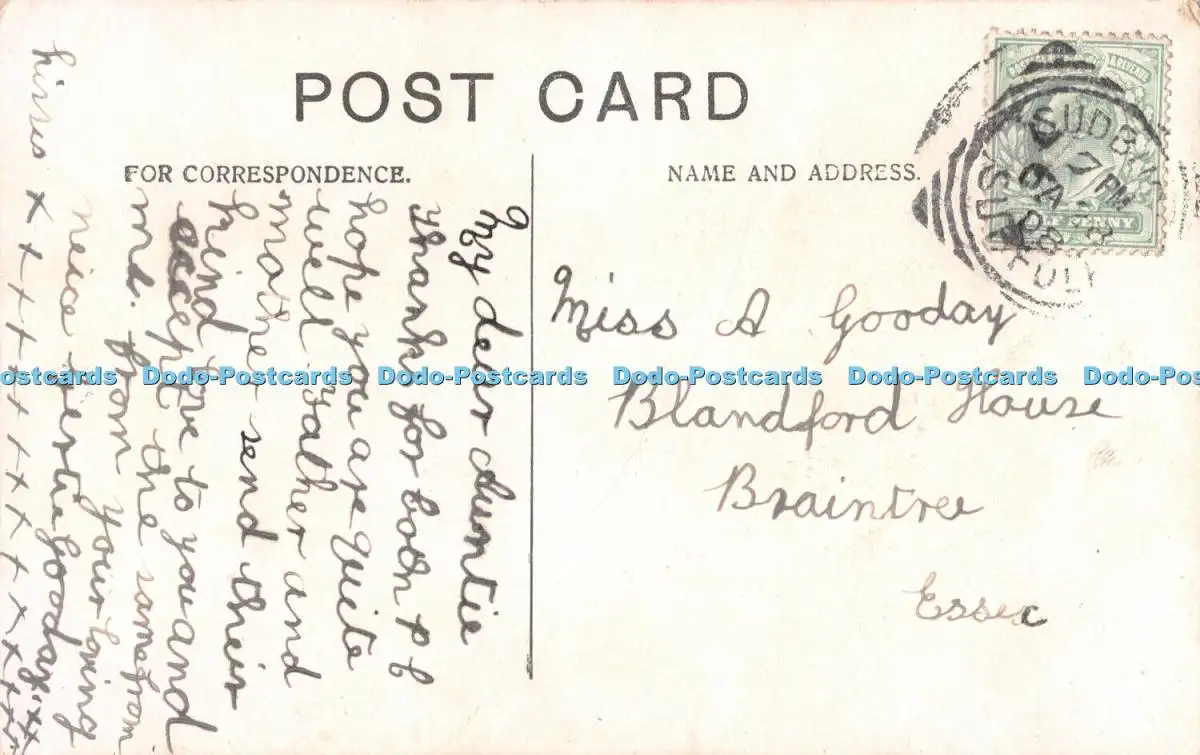 POST CARD
FOR CORRESPONDENCE.
NAME AND ADDRESS.
My dear Auntie
thanks for book p p
hope you are quite
well father and
mother send their
kind love to you and
accept the same from
me. from your loving
neice Bertie Gooday
kisses x x x x x x x x x x x x x x x
Miss A Gooday
Blandford House
Braintree
Essex
SUDBURY
7 PM
JA
08
SUFFOLK
HALF PENNY
Dodo-Postcards Dodo-Postcards Dodo-Postcards Dodo-Postcards Dodo-Postcards